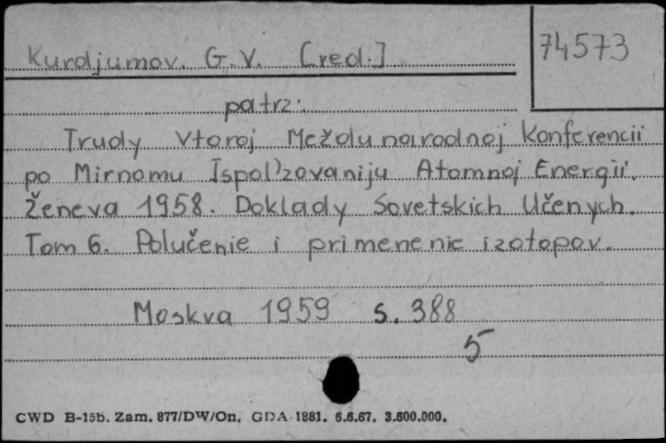 Kurdjumov. G.V. [red.]
74573
patrz:
Trudy Vtoroj Meždunarodnoj Konferencii
po Mirnomu Ispol'zovaniju Atomnoj Energii.
Ženeva 1958. Doklady Sovetskich Učenych.
Tom 6. Polučenie i primenenie izotopov.
Moskva 1959 s. 388
5
CWD B-15b. Zam. 877/DW/On. GDA 1881. 6.6.67. 3.600.000.